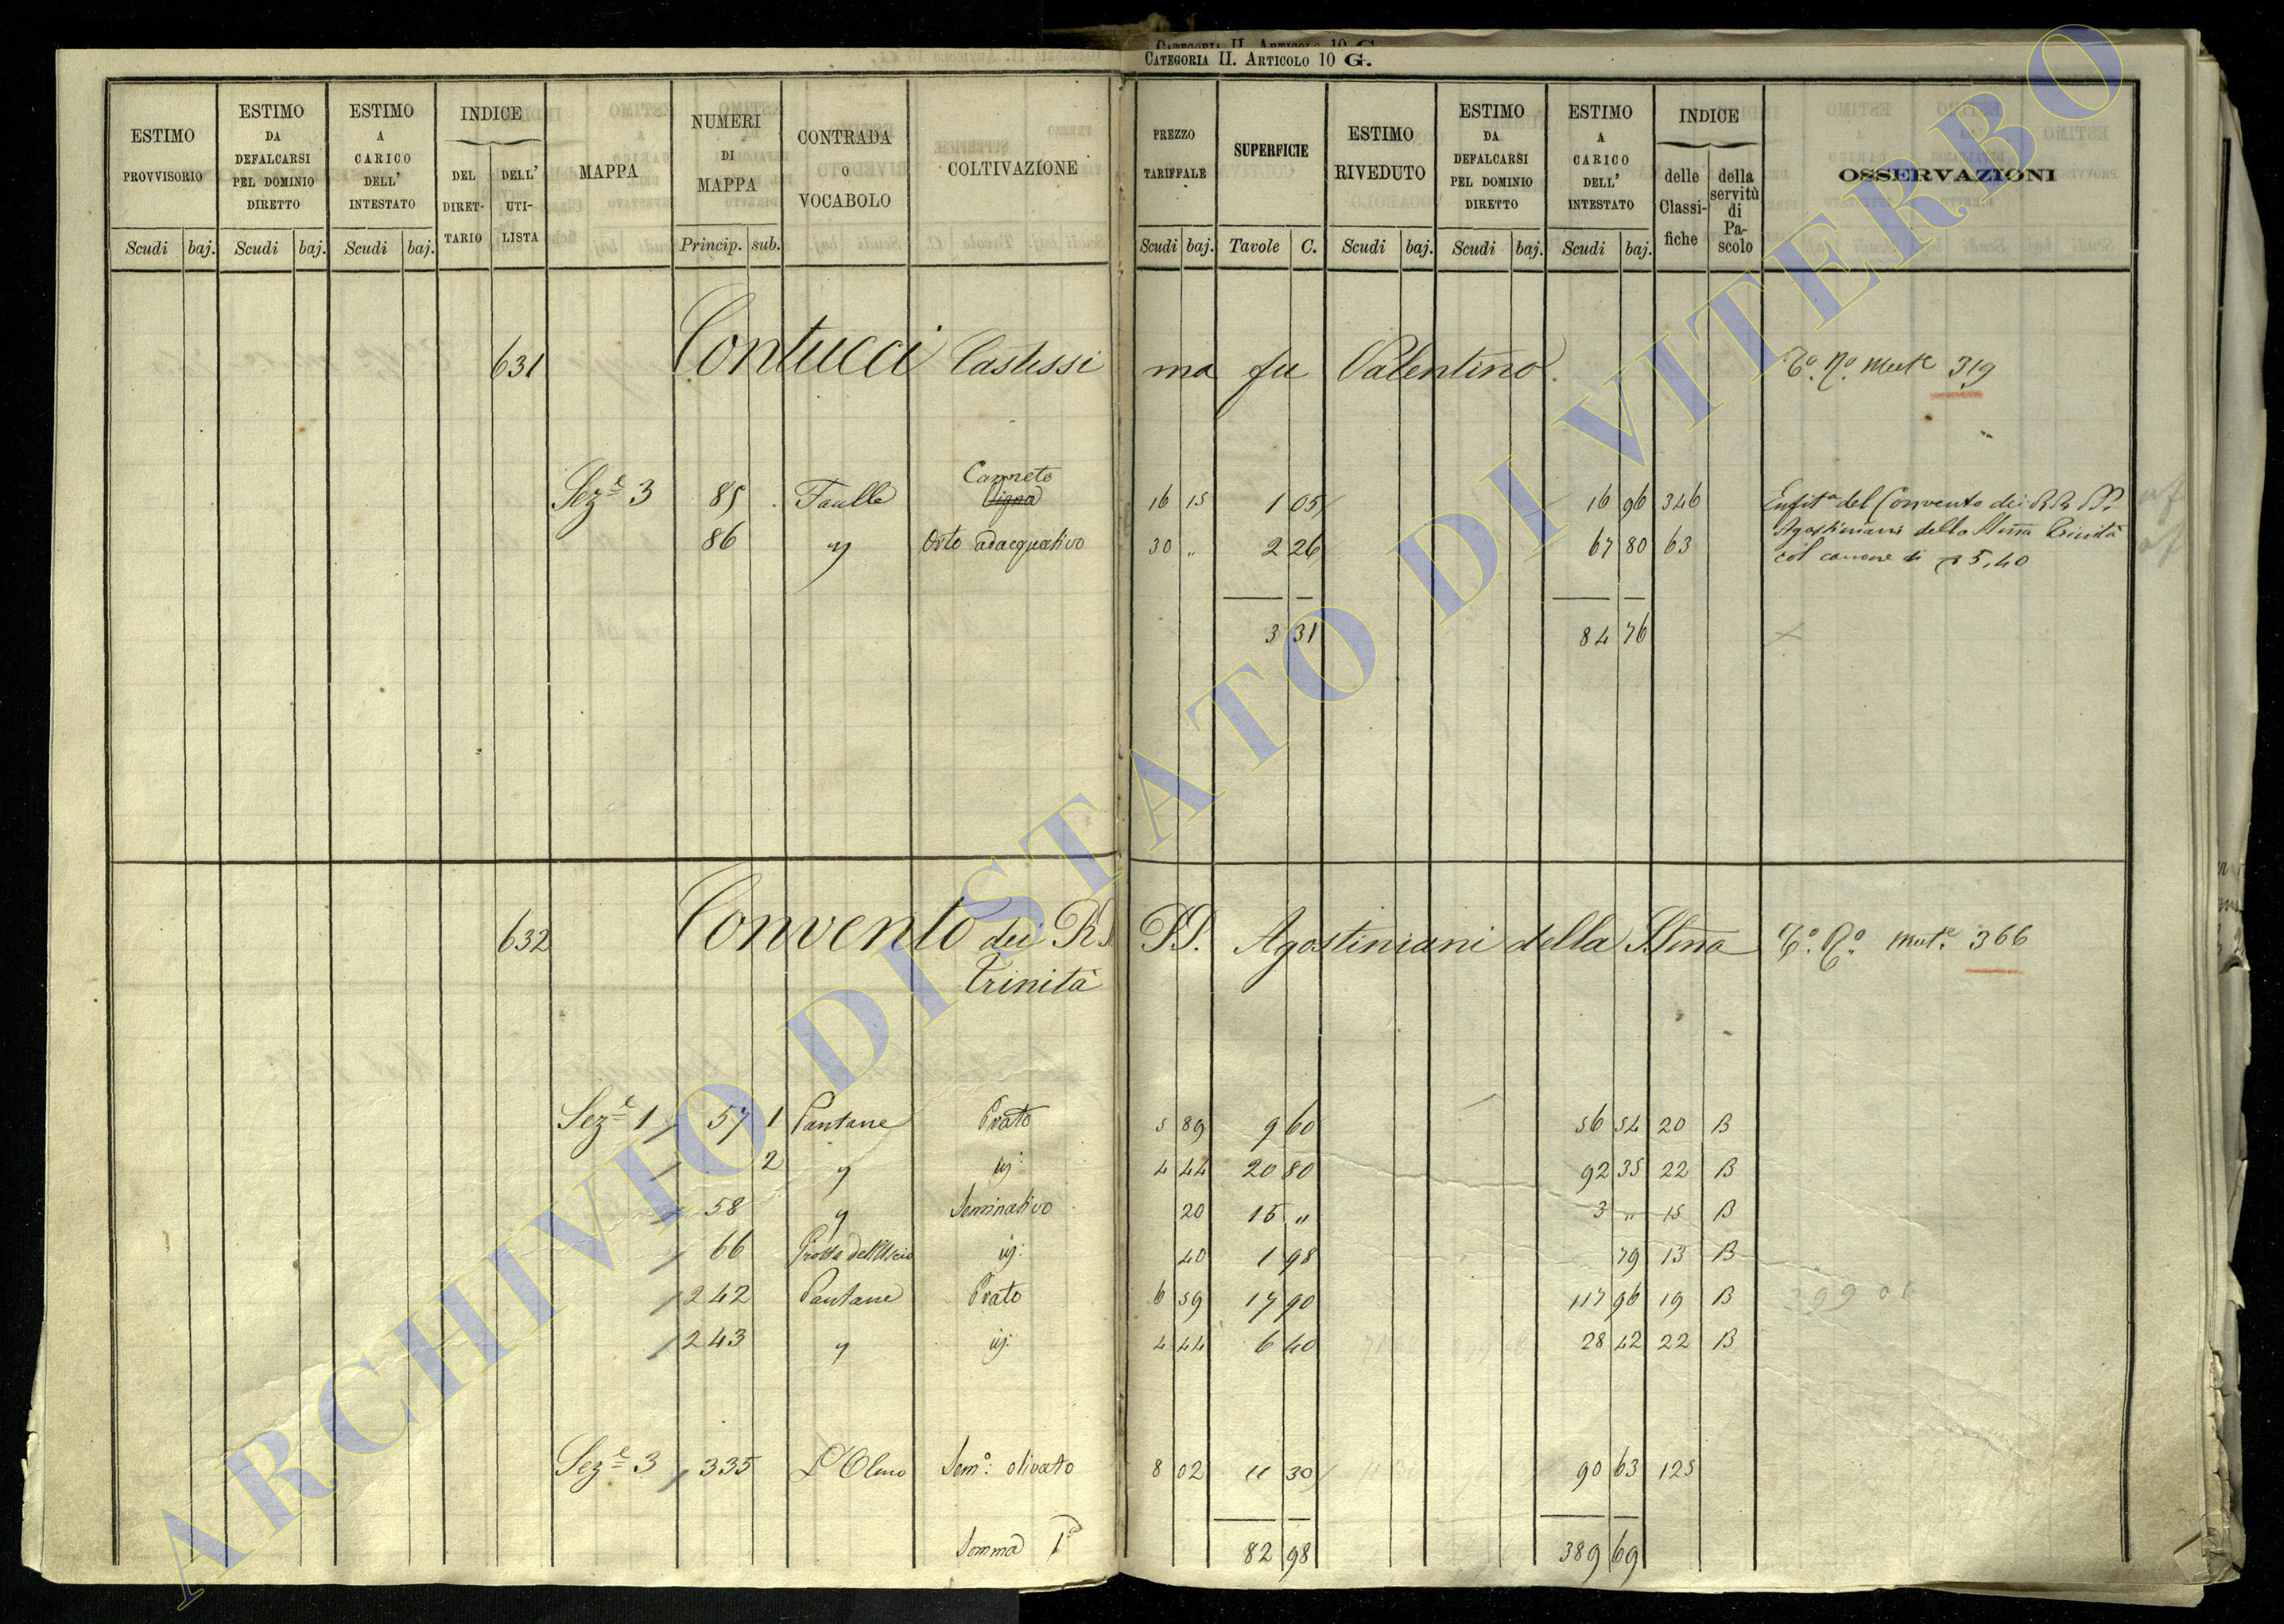 CATEGORIA II. ARTICOLO 10 G.
CATEGORIA II. ARTICOLO 10 G.
ESTIMO PROVVISORIO Scudi baj.
ESTIMO DA DEFALCARSI PEL DOMINIO DIRETTO Scudi baj.
ESTIMO A CARICO DELL' INTESTATO Scudi baj.
INDICE DEL DIRET- TARIO DELL' UTI- LISTA
MAPPA
NUMERI DI MAPPA Princip. sub.
CONTRADA O VOCABOLO
COLTIVAZIONE
PREZZO TARIFFALE Scudi baj.
SUPERFICIE Tavole C.
ESTIMO RIVEDUTO Scudi baj.
ESTIMO DA DEFALCARSI PEL DOMINIO DIRETTO Scudi baj.
ESTIMO A CARICO DELL' INTESTATO Scudi baj.
INDICE delle Classi- fiche della servitù di Pa- scolo
OSSERVAZIONI
631 Contucci Castissi ma fu Valentino Mute 319
Canneto
Seze 3 85 Faulle Vigna 16 15 1 05 16 96 346 Enfita del Convento dei RR. PP.
86 " Orto adacquativo 30 " 2 26 67 80 63 Agostiniani della SSma Trinità
col canone di 5,40
3 31 84 76
632 Convento dei RR. PP. Agostiniani della SSma Mute 366
Trinità
Seze 1 57 1 Pantane Prato 5 89 9 60 56 54 20 B
2 " id: 4 44 20 80 92 35 22 B
58 " Seminativo 20 15 " 3 " 15 B
66 Grotta dell'Ascio id: 40 1 98 79 13 B
242 Pantane Prato 6 59 17 90 117 96 19 B
243 " id: 4 44 6 40 28 42 22 B
Seze 3 335 L'Olmo Semo: olivato 8 02 11 30 90 63 125
Somma Pa 82 98 389 69
ARCHIVIO DI STATO DI VITERBO